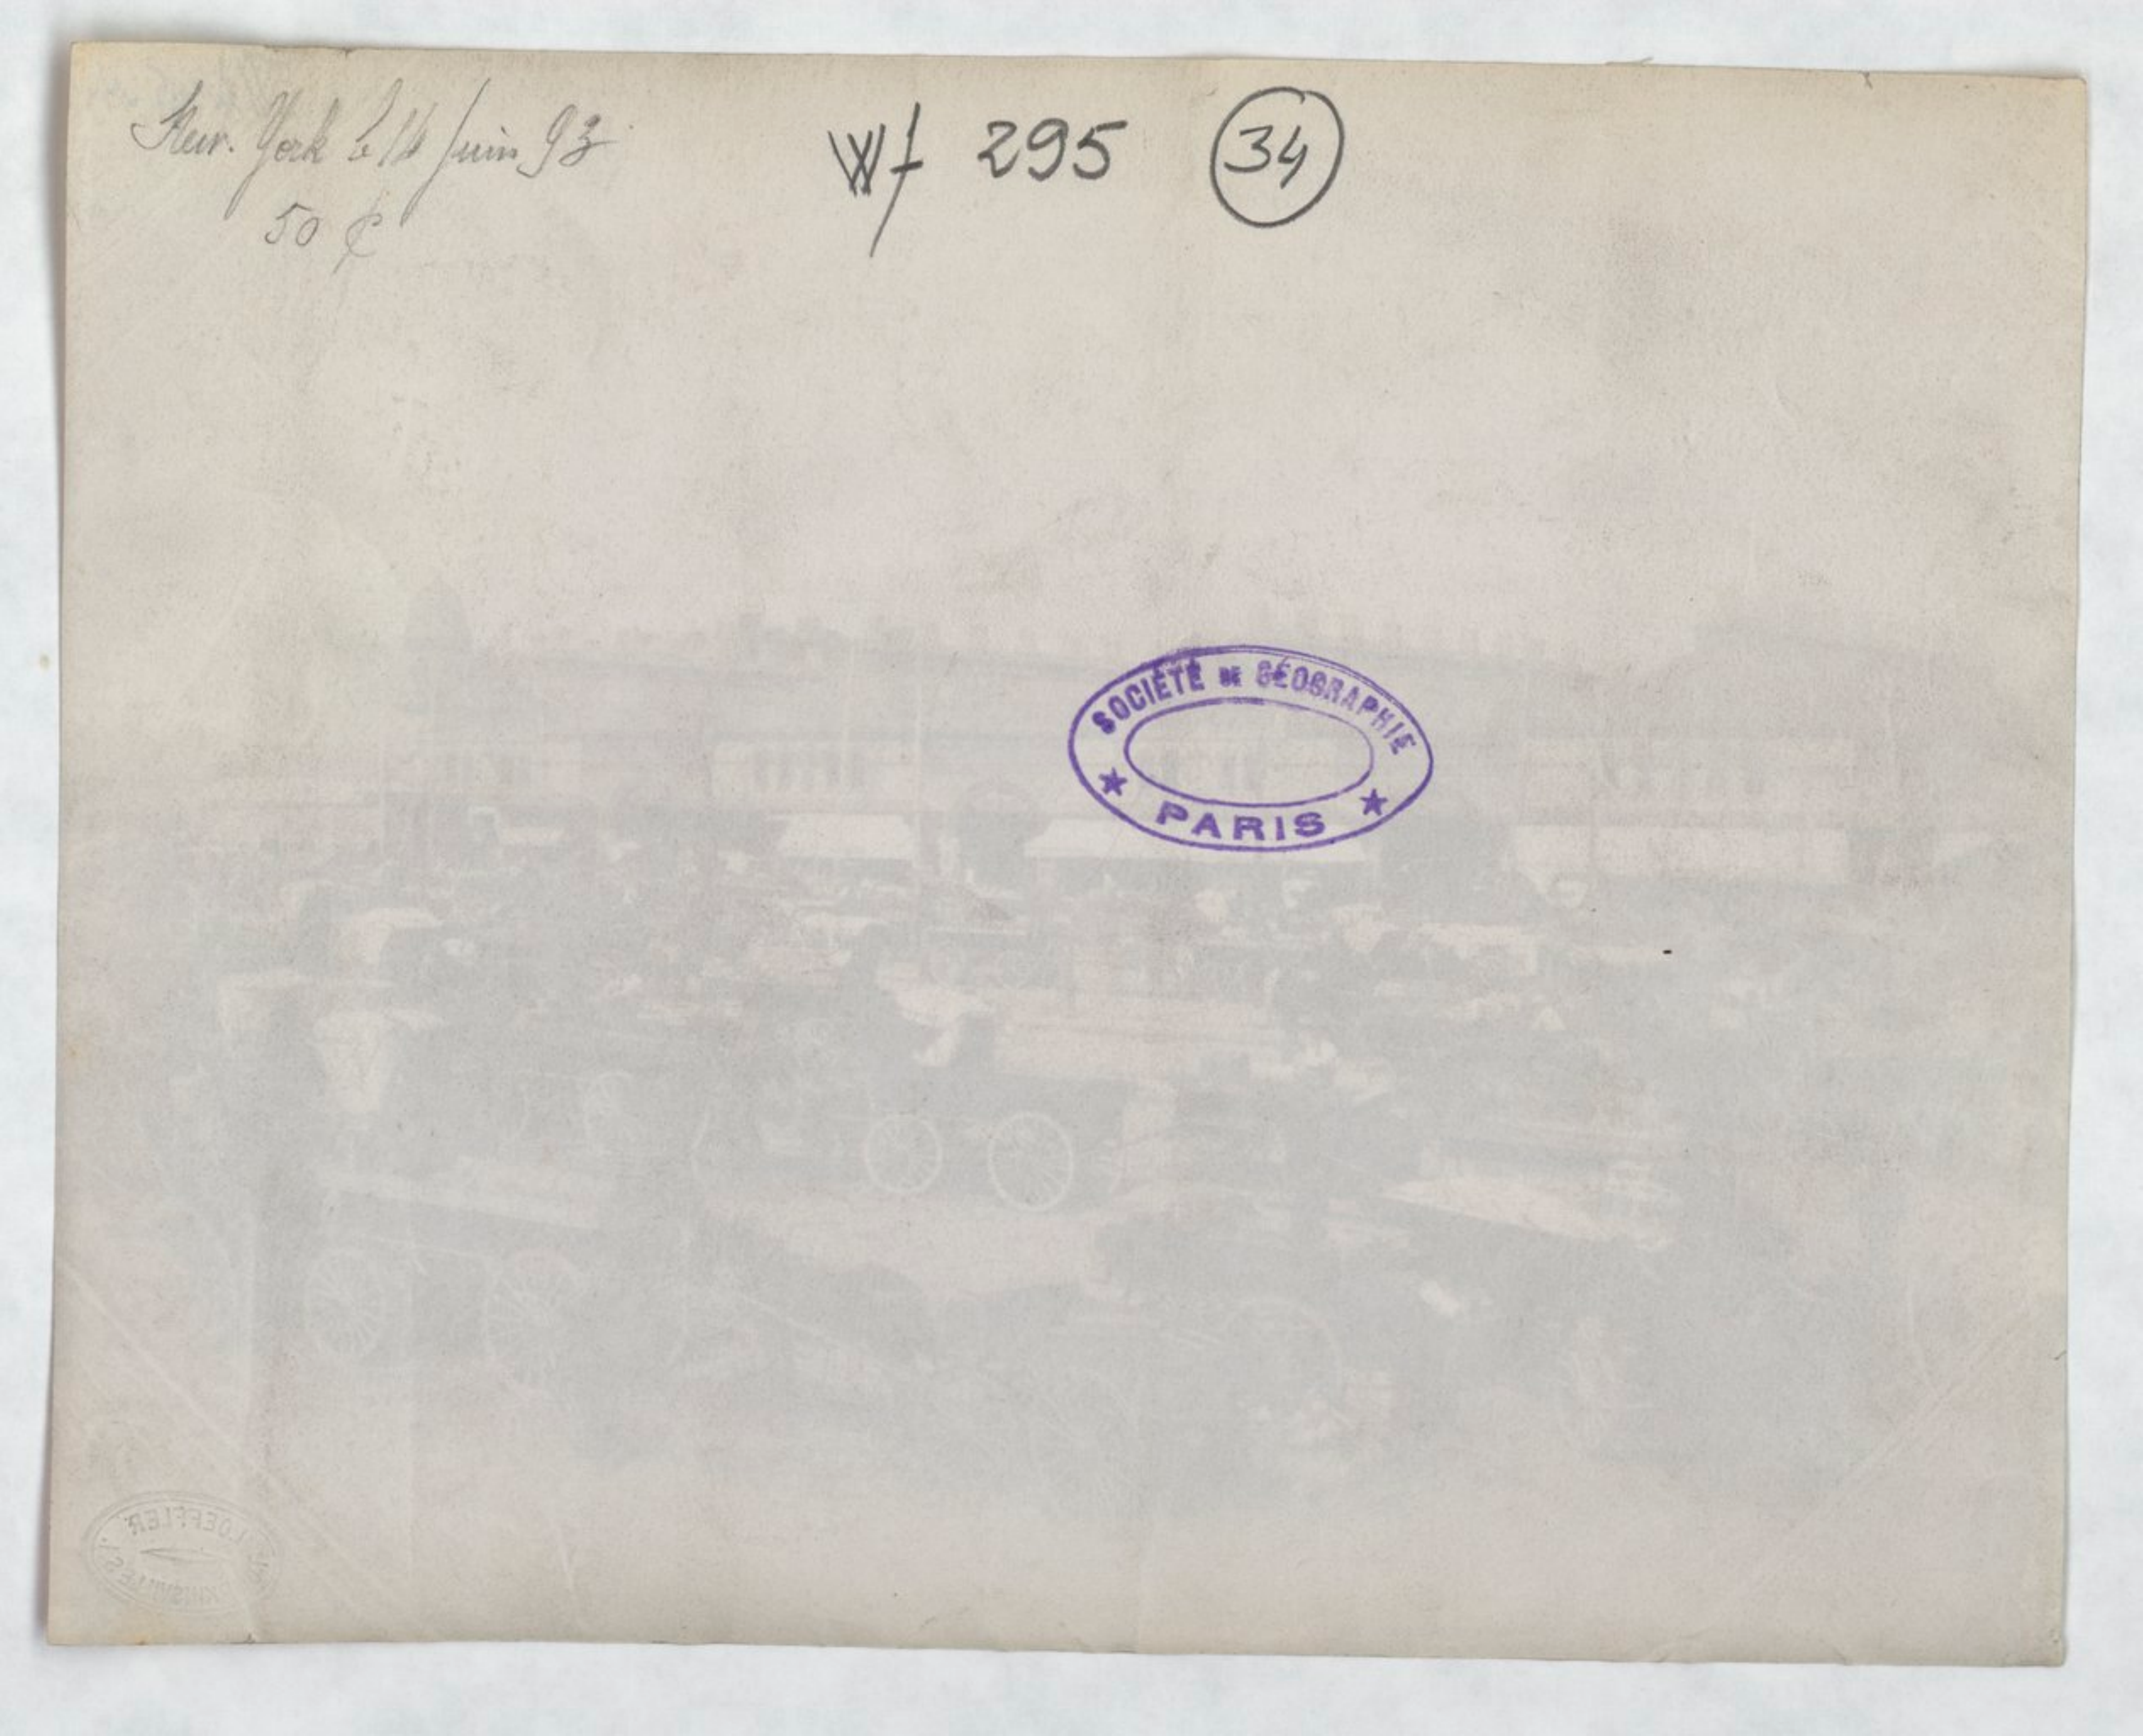 New. York le 14 Juin 93
50 ¢
Wf 295 34
SOCIÉTÉ DE GÉOGRAPHIE
PARIS
LOEFFLER